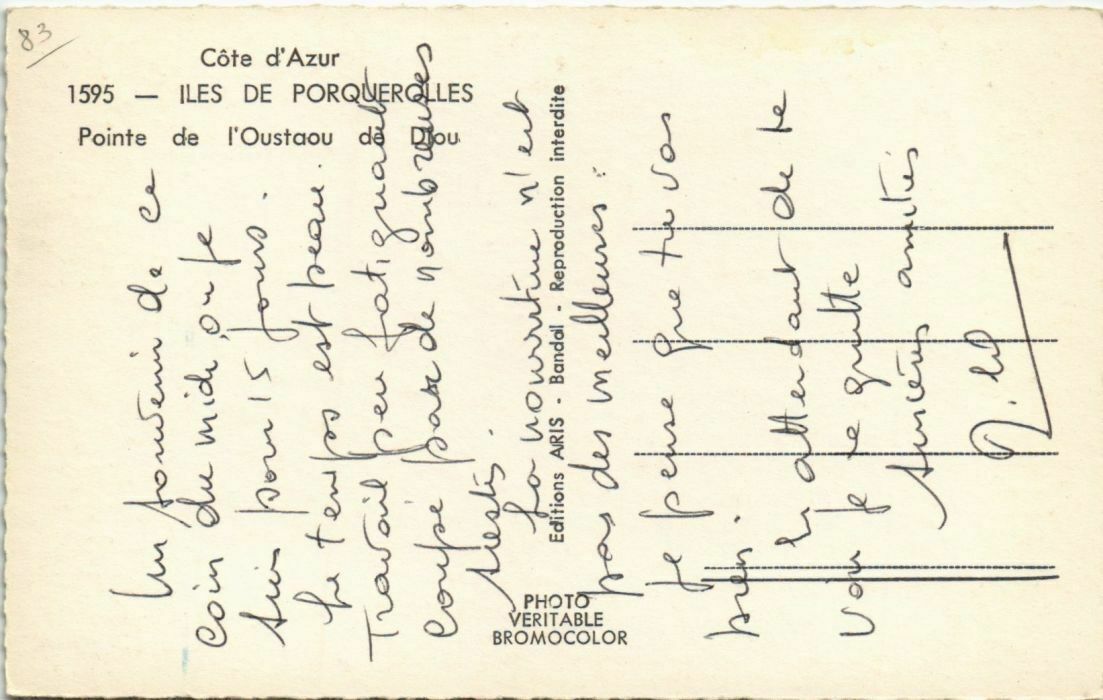 83
Côte d'Azur
1595 — ILES DE PORQUEROLLES
Pointe de l'Oustaou dè Diou
Editions ARIS - Bandol - Reproduction interdite
PHOTO
VERITABLE
BROMOCOLOR
Un souvenir de ce
coin du midi, ou je
suis pour 15 jours.
Le temps est beau.
Travail peu fatiguant
coupé par de nombreuses
siestes.
La nourriture n'est
pas des meilleures.
Je pense que tu vas
bien.
En attendant de te
voir je te quitte
Sincères amitiés